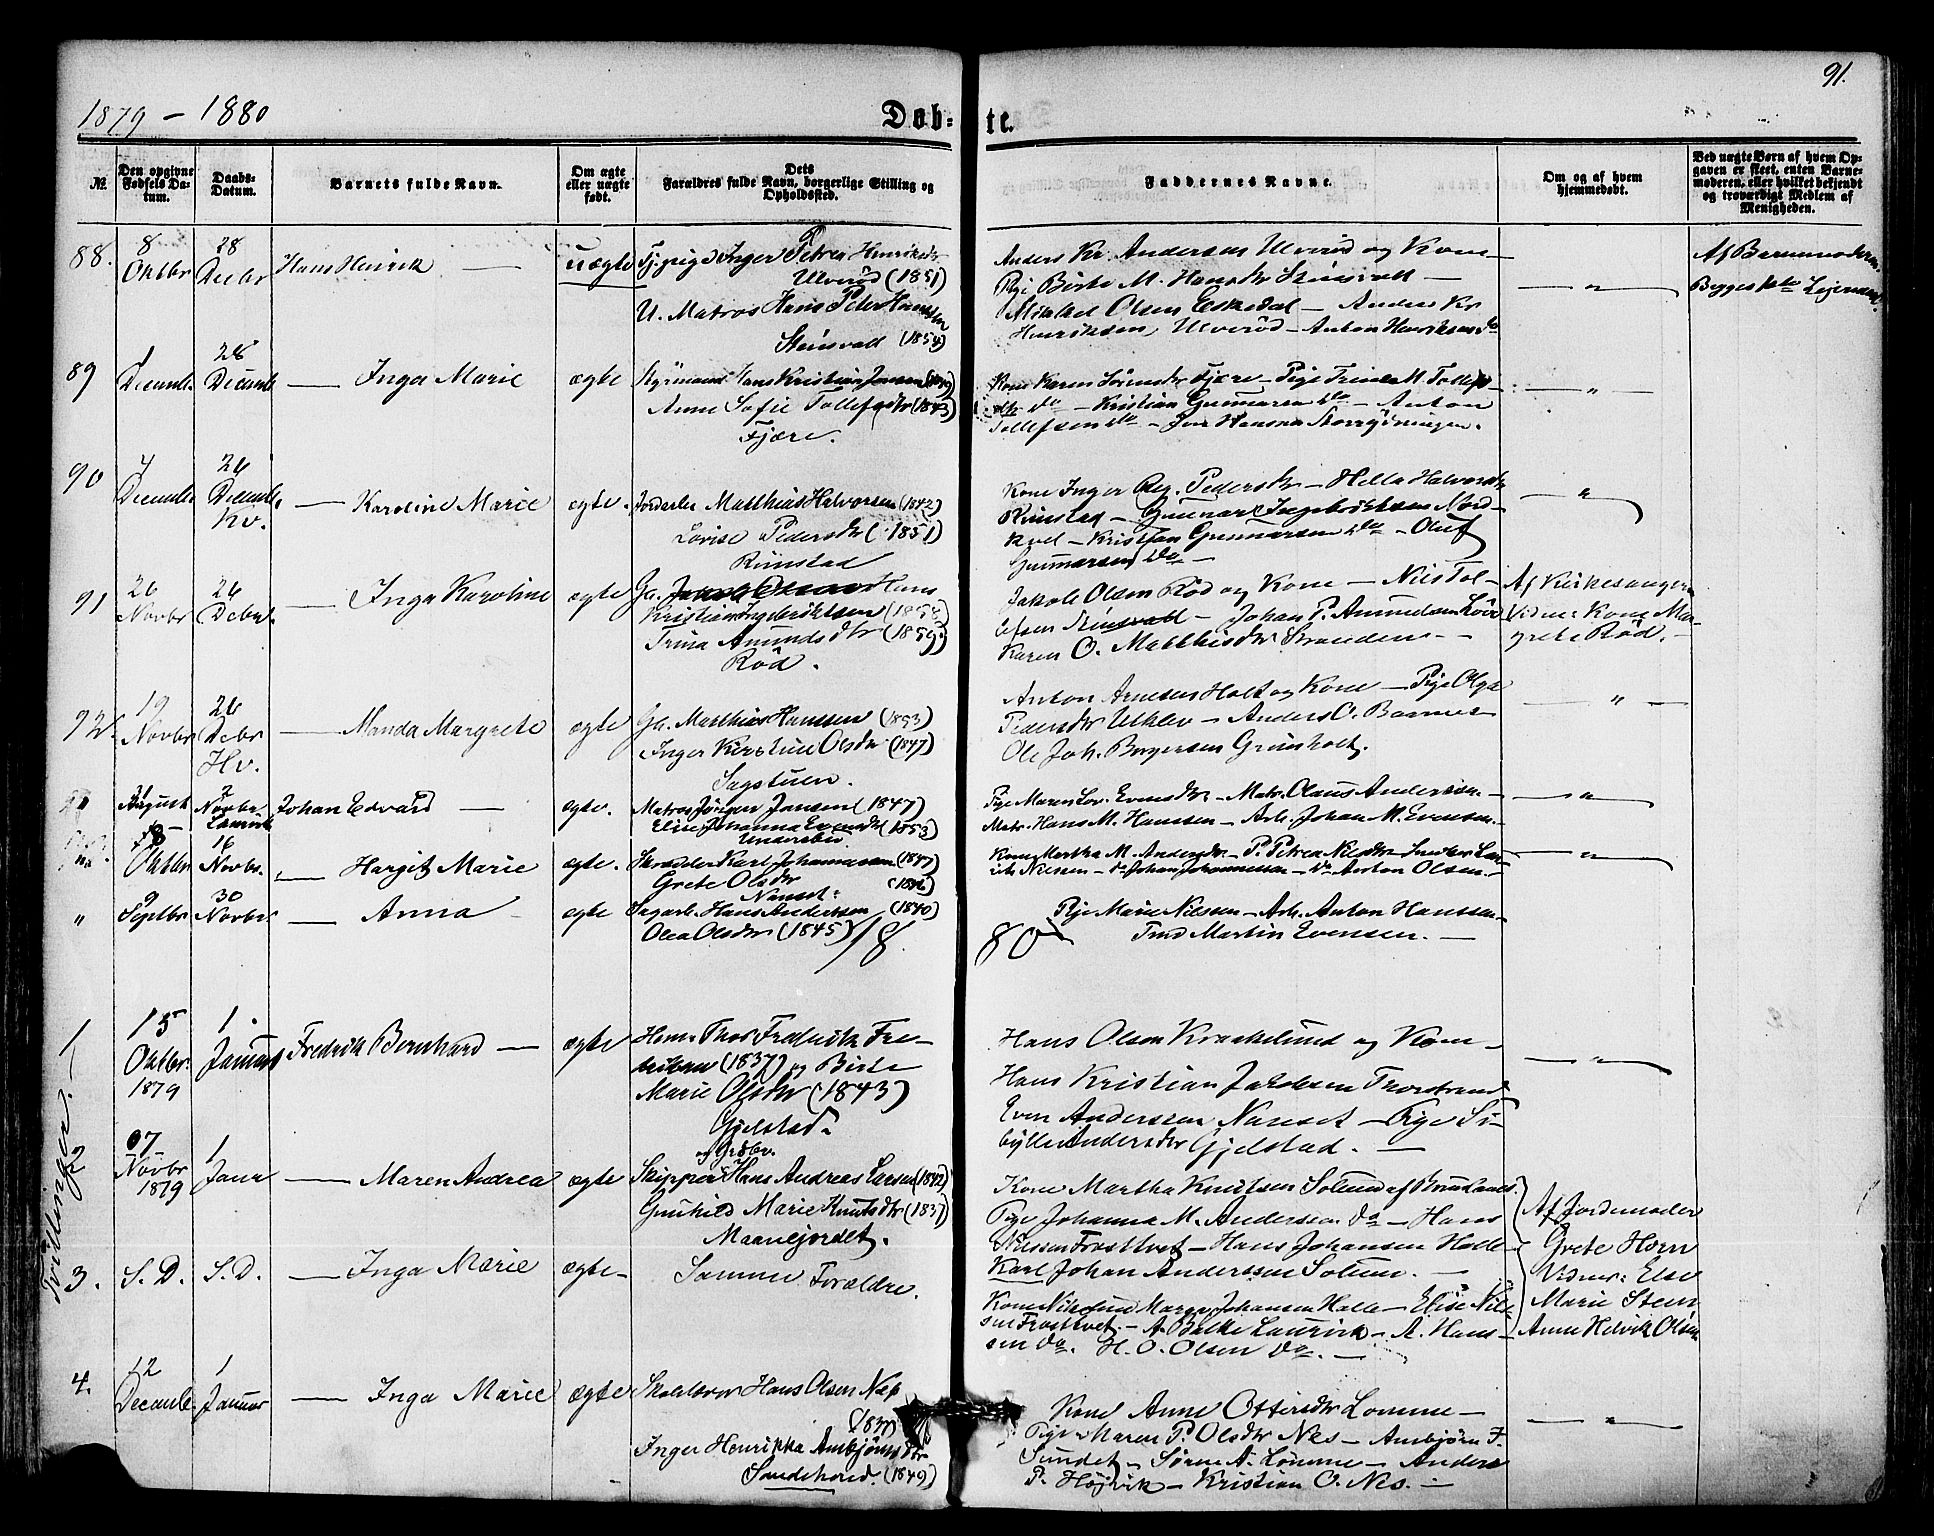 1879 - 1880
Døb-
te.
91.
No.
Den opgivne Fødsels Datum.
Daabs-Datum.
Barnets fulde Navn.
Om ægte eller uægte født.
Dets Forældres fulde Navn, borgerlige Stilling og Opholdssted.
Faddernes Navne.
Om og af hvem hjemmedøbt.
Ved uægte Børn af hvem Opgaven er skeet, enten Barnemoderen, eller hvilket bekjendt og troværdigt Medlem af Menigheden.
88.
8 Oktbr
28 Decbr
Hans Henrik
uægte
Inger Petrea
Ulverød (1851)
U. Matros Hans Peter Hanssen
(1854)
Anders Kr. Andersen Ulverød og Kone
Pige Birte M. Hansdtr
Mikkel Olsen Eskedal - Anders Kr
Henriksen, Ulverød - Anton Henriksen do
Af Barnemoderen.
89
1 Decembr
26 Decembr
Inga Marie
ægte
Styrmand Hans Kristian Jansen
Anne Sofie Tollefsdtr (1843)
Fjære.
Kone Karen Fjære - Pige Trine M. Tollefs-
dtr do - Kristian Gunnarsen do - Anton
Tollefsen do
90
7 Decembr
26 Decembr
Kv.
Karoline Marie
ægte.
Jordarb. Matthias Halvorsen (1842)
Lovise Pedersdtr (1851)
Rimstad
Kone Inger Pedersdtr - Helle Halvorsdtr
Rimstad - Gunnar Ingebriktsen Nord-
kvel - Kristian Gunnarsen do - Oluf
Gunnarsen do -
91
26 Novbr
26 Debr
Inga Karoline
ægte
Ga. Hans
Kristian Ingebriktsen
Trina Amundsdtr (1859)
Rød.
Jakob Olsen Rød og Kone - Nils Tol-
lefsen - Johan P. Amundsen
Karen O. Matthisdtr Stranden -
Af Kirkesanger
Vidner: Kone Mar-
grete Rød.
92
19 Novbr
26 Debr
Hv.
Manda Margrete
ægte
Ga. Matthias Hanssen (1853)
Inger Kirstine Olsdtr (1847)
Sagstuen.
Anton Arnesen Holt og Kone - Pige Olga
Pedersdtr Utklev - Anders O. Barnes
Ole Joh. Borgersen Grimholt.
August
2 Novbr
Laurvik
Johan Edvard
ægte.
Matros Jørgen Jansen (1847)
Elise Johanna Evensdtr (1853)
Pige Maren Lov. Evensdtr - Matr. Olaus Anderssen
Matr. Hans M. Hanssen - Arb. Johan M. Evensen.
18 Oktbr
16 Novbr.
Hargit Marie
ægte.
Skrædder Karl Johannesen (1847)
Grete Olsdtr
Nanset.
Kone Martha M. Andersdtr - P. Petrea Nilsdtr - Snedker Lau-
rits Nilssen - do Johan Johannessen - do Anton Olsen
"
9 Septbr
30 Novbr
Anna
ægte
Sagarb. Hans Anderssen (1840)
Olea Olsdtr (1845)
18.
80
Pige Marie Nilssen - Arb. Anton Hanssen
Martin Evensen.
1
15 Oktbr. 1879
1. Januar
Fredrik Bernhard
ægte
Thor Fredrik Fre-
driksen (1837) og Birte
Marie Olsdtr (1843)
Gjelstad.
Hans Olsen Kraakelund og Kone
Hans Kristian Jakobsen Thorstrand
Even Anderssen Nanset - Pige Si-
bylle Andersdtr Gjelstad.
Tvillinger.
2
7 Novbr 1879
1 Janr
Maren Andrea
ægte
Skipper Hans Andreas Larsen (1842)
Gunhild Marie Knutsdtr (1837)
Maanejordet.
Kone Martha Knutsen Solum af Brunlanes.
Pige Johanna M. Andersen do - Hans
Nilssen Frosttvet - Hans Johansen Halle
Karl Johan Anderssen Solum.
Af Jordemoder
Grete Horn
Vidner: Else
Marie Steen
Anne Helvik Olsen
3.
S. D.
S. D.
Inga Marie
ægte
Samme Forældre.
Johansen Halle - Elise Nils-
sen Frosttvet. - A. Balke Laurvik - A. Hans-
sen do. H. O. Olsen do.
4.
12 Decembr
1 Januar
Inga Marie
ægte
Hans Olsen Næs
(1837)
Inger Henrikka Anbjørnsdtr
Sandehored. (1849)
Kone Anne Ottersdtr Lomme
Pige Maren P. Olsdtr Nes - Anbjørn F.
Sundet - Søren A. Lomme - Anders
P. Højvik - Kristian O. Nes.